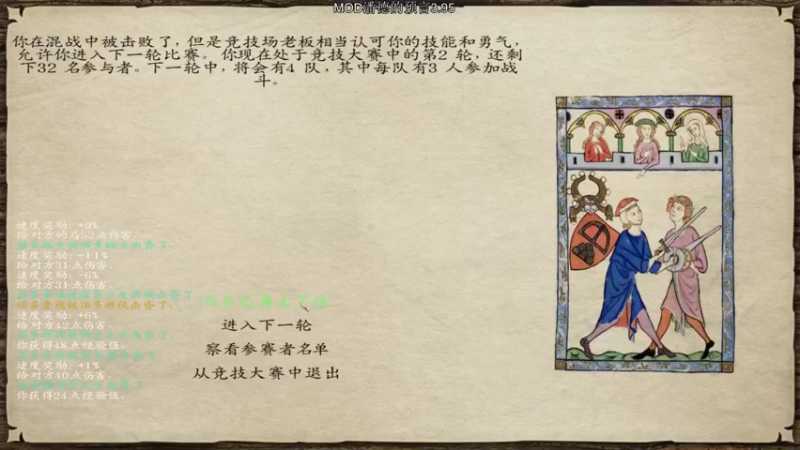 MOD潘德的预言3.95
你在混战中被击败了，但是竞技场老板相当认可你的技能和勇气，
允许你进入下一轮比赛。你现在处于竞技大赛中的第2 轮，还剩
下32 名参与者。下一轮中，将会有4 队，其中每队有3 人参加战
斗。
速度奖励: +9%
给对方的马52点伤害.
速度奖励: -11%
给对方31点伤害.
速度奖励: -6%
给对方31点伤害.
速度奖励: +6%
给对方42点伤害.
你获得48点经验值.
速度奖励: +1%
给对方40点伤害.
你获得24点经验值.
进入下一轮
察看参赛者名单
从竞技大赛中退出